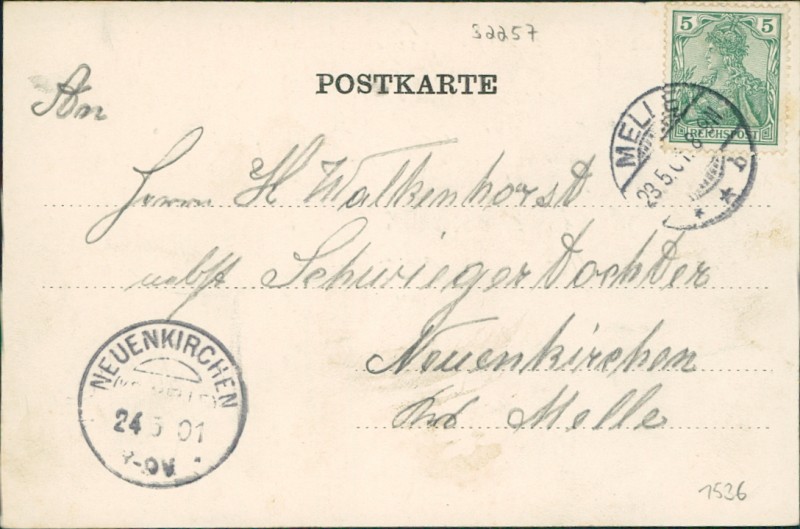 32257
5 5
REICHSPOST
POSTKARTE
An
MELLE
23.5.01.8-9N
* * b
Herrn H Walkenhorst
nebst Schwiegertochter
Neuenkirchen
Melle
NEUENKIRCHEN
24 5 01
-9V
1536